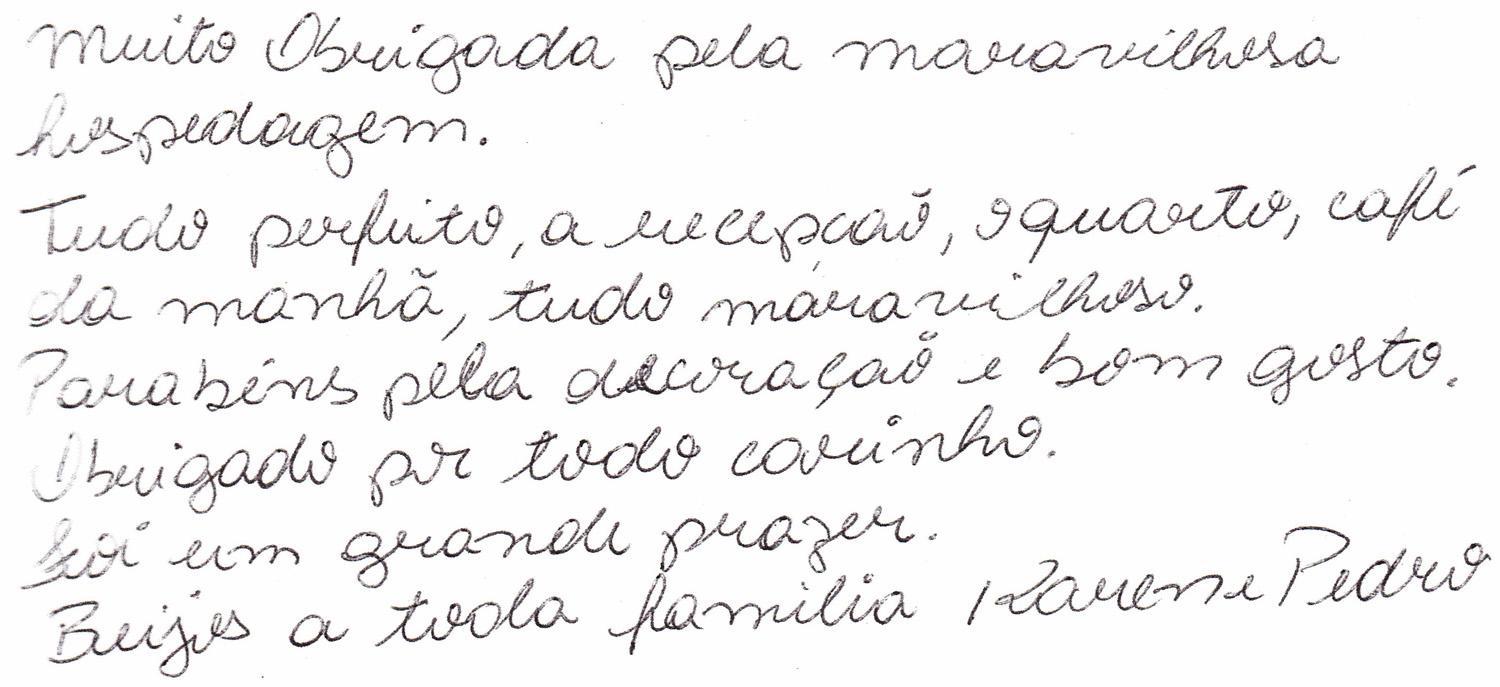 Muito Obrigada pela maravilhosa
hospedagem.
Tudo perfeito, a recepção, o quarto, café
da manhã, tudo maravilhoso.
Parabéns pela decoração e bom gosto.
Obrigado por todo carinho.
Foi um grande prazer.
Beijos a toda familia Karen e Pedro